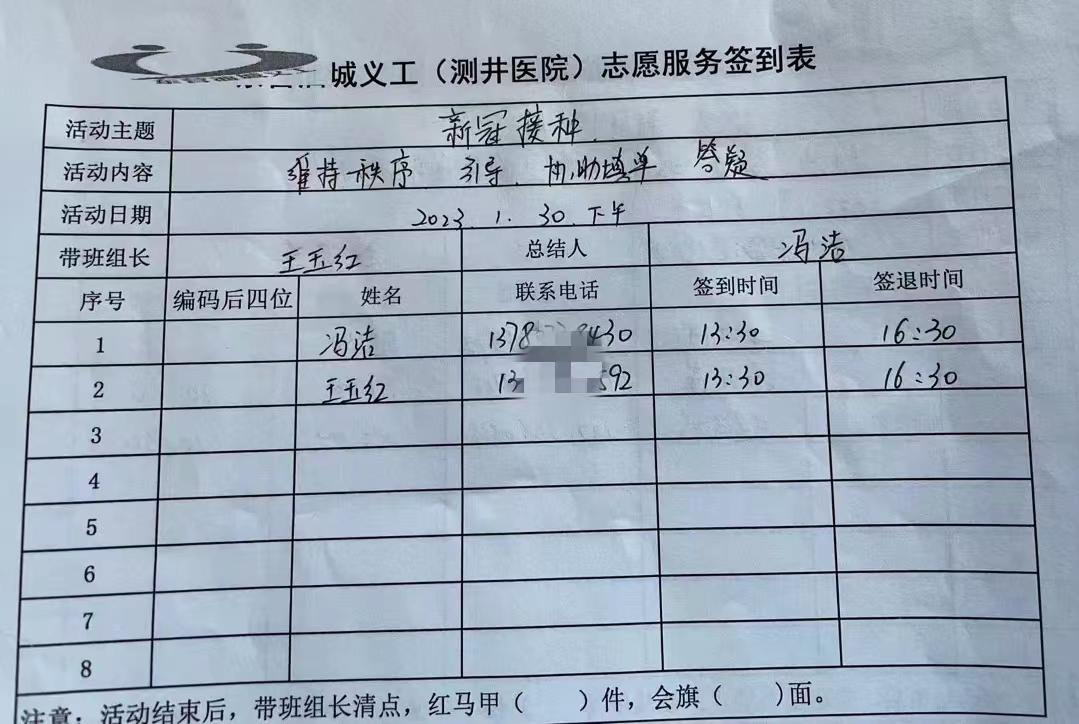 城义工（测井医院）志愿服务签到表
活动主题 新冠接种
活动内容 维持秩序、引导、协助填单 答疑
活动日期 2023.1.30.下午
带班组长 王玉红 总结人 冯洁
序号 编码后四位 姓名 联系电话 签到时间 签退时间
1 冯洁 1378 430 13:30 16:30
2 王玉红 13 592 13:30 16:30
3
4
5
6
7
8
注意：活动结束后，带班组长清点，红马甲（ ）件，会旗（ ）面。